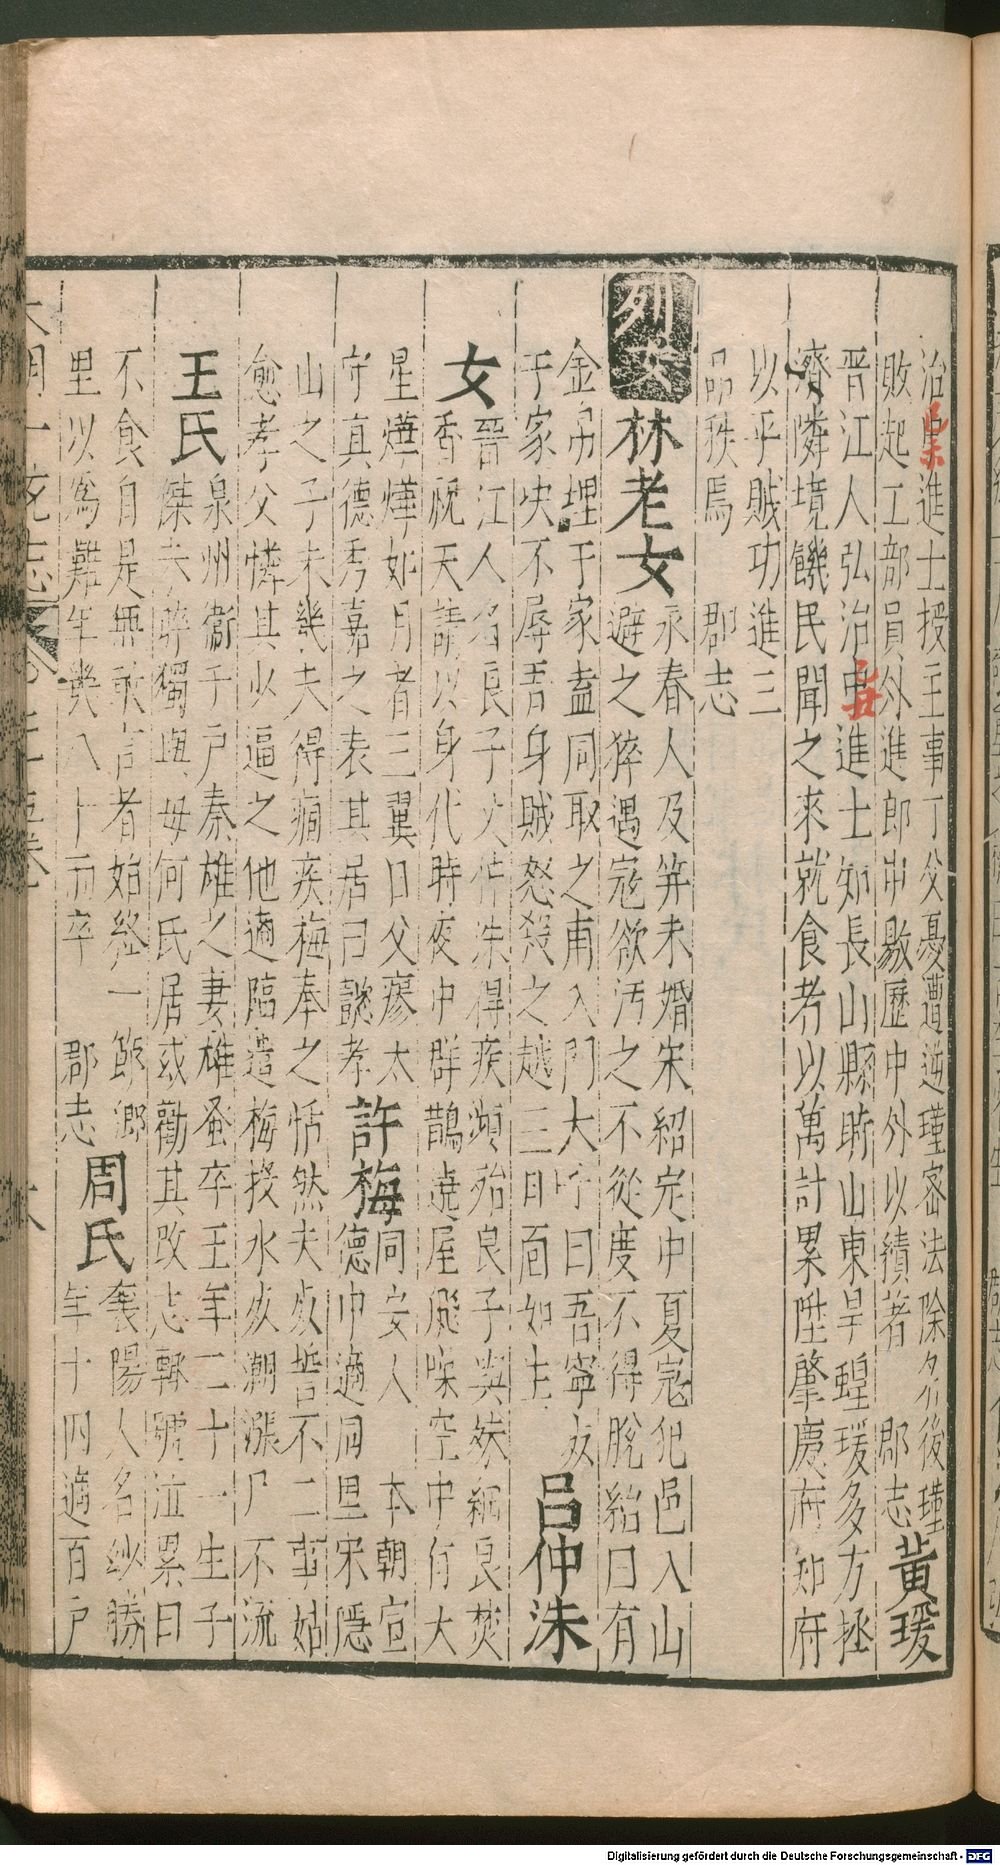 治己未進士授主事丁父憂遭逆瑾密法除名後瑾
敗起工部員外進郎中敭歷中外以績著 郡志 黃瑗
晉江人弘治乙丑進士知長山縣時山東旱蝗瑗多方拯
濟隣境饑民聞之來就食者以萬計累陞肇慶府知府
以平賊功進三
品秩焉 郡志
列女 林老女 永春人及笄未婚宋紹定中夏寇犯邑入山
避之猝遇寇欲汚之不從度不得脫紿曰有
金帛埋于家盍同取之甫入門大呼曰吾寧女
于家决不辱吾身賊怒殺之越三日面如生 呂仲洙
女 晉江人名良子父仲洙得疾瀕殆良子與妹細良焚
香祝天請以身代時夜中群鵲遶屋飛噪空中有大
星燁燁如月者三翼日父瘳太
守真德秀嘉之表其居曰懿孝 許梅 同安人 本朝宣
德中適同里宋隱
山之子未幾夫得痼疾梅奉之恬然夫歿誓不二事姑
愈孝父憐其少逼之他適臨遣梅投水歿潮漲尸不流
王氏 泉州衞千戶秦雄之妻雄蚤卒王年二十一生子
傑夫 獨與母何氏居或勸其改志輒號泣累日
不食自是無敢言者始終一節鄉
里以為難年幾八十而卒 郡志 周氏 襄陽人名紗勝
年十四適百戶
大明一統志